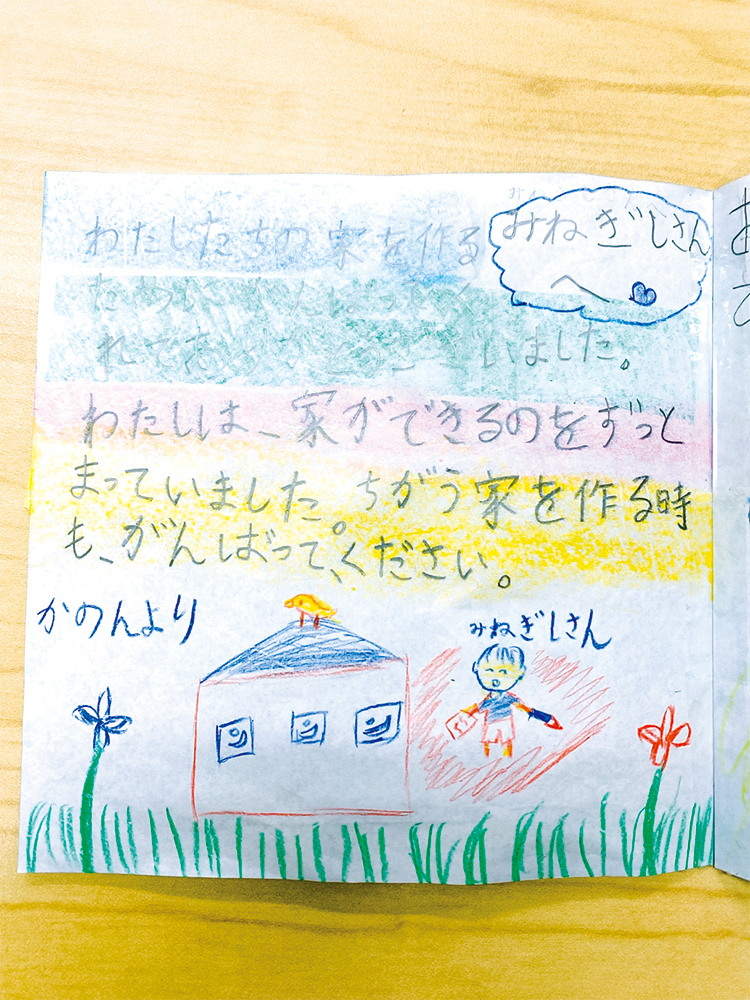 みねぎしさん
へ
わたしたちの家を作る
ために、がんばってく
れてありがとうございました。
わたしは、家ができるのをずっと
まっていました。ちがう家を作る時
も、がんばって、ください。
かのんより
みねぎしさん